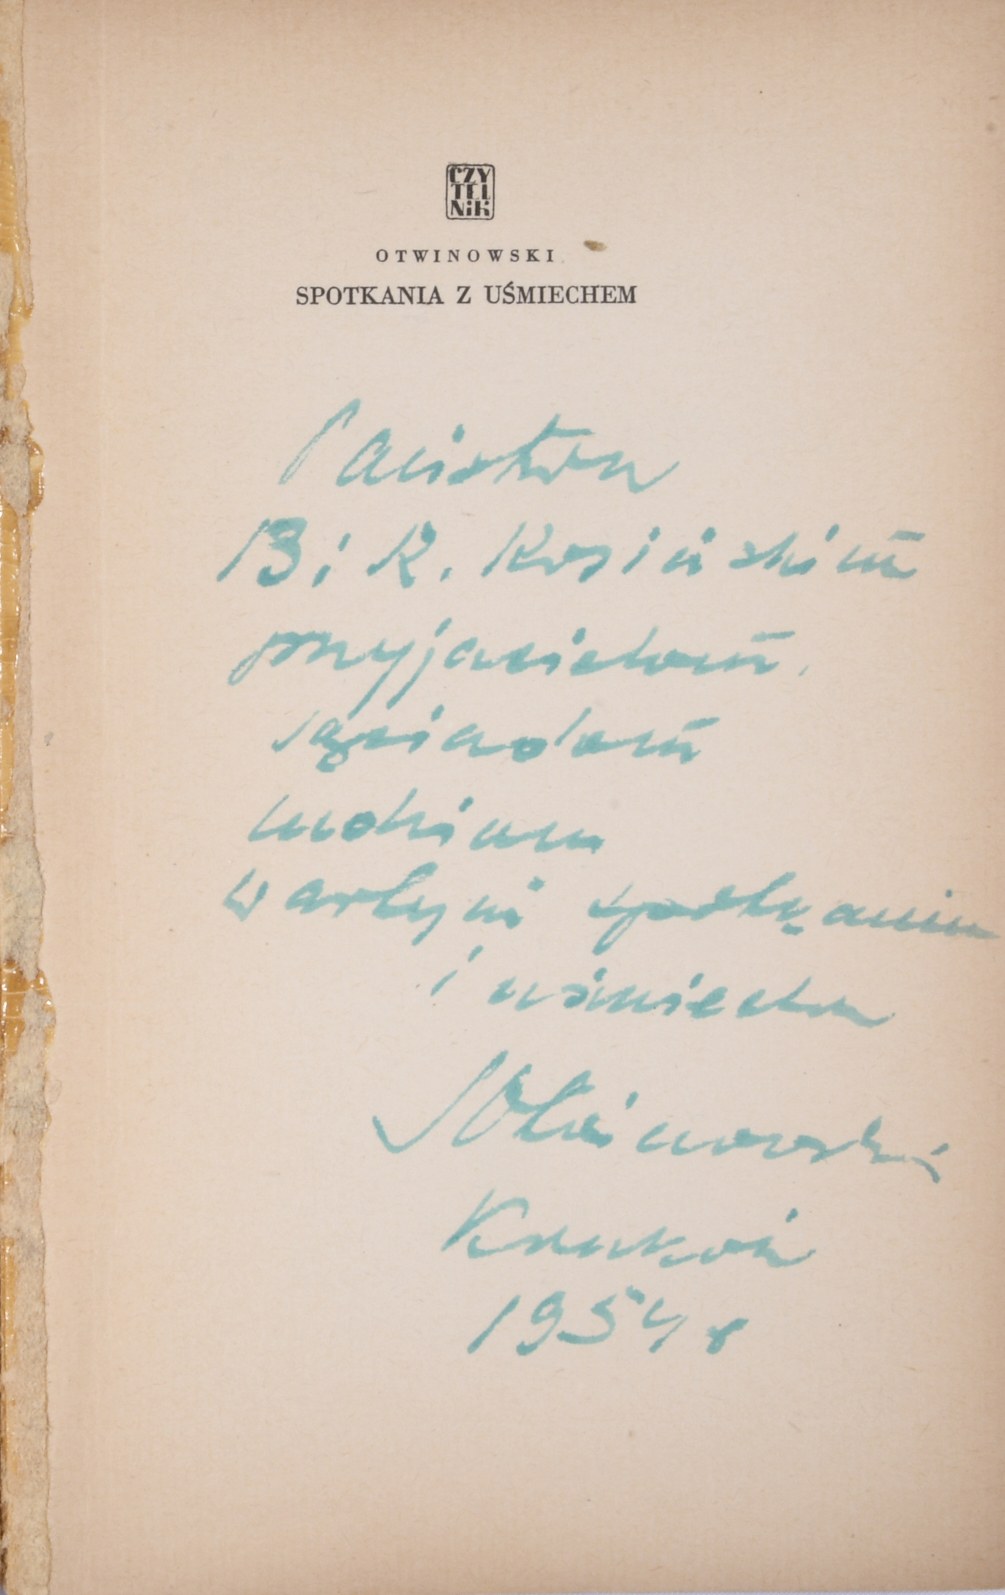 CZY
TEL
NiK
OTWINOWSKI
SPOTKANIA Z UŚMIECHEM
Państwu
B i K. Kosińskim
przyjaciołom,
sąsiadom
ludziom
wartym spotkania
i uśmiechu
SOtwinowski
Kraków
1954 r